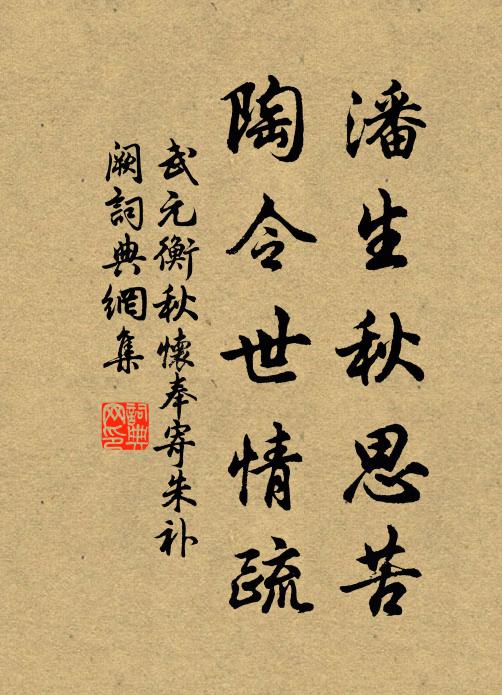 潘生秋思苦
陶令世情疏
武元衡秋懷奉寄朱补
阙詞典網集
詞典
网印